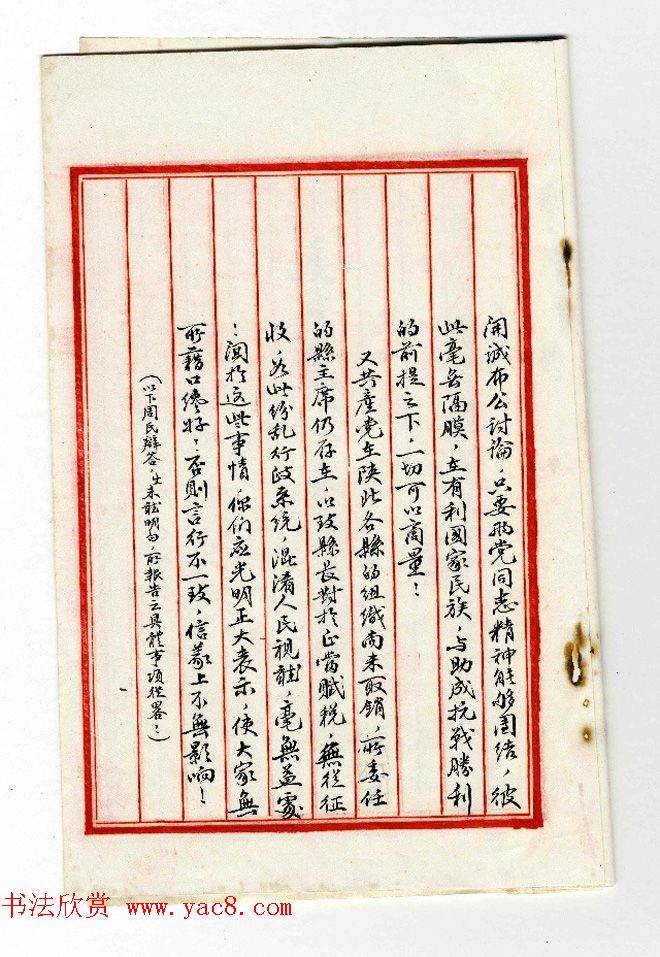 開誠布公討論，只要兩党同志精神能够团结，彼
此毫无隔膜，在有利國家民族，与助成抗戰勝利
的前提之下，一切可以商量！
又共產党在陕北各縣的組織尚未取銷，所委任
的縣主席仍存在，以致縣長對於正當賦稅，無從征
收，如此纷乱行政系统，混淆人民視聽，毫無益處
！関於这些事情，你們应光明正大表示，使大家無
所藉口纔好！否則言行不一致，信義上不無影响！
（以下周氏辯答，出未能明白，所報告之具體事項從畧！）
书法欣赏 www.yac8.com